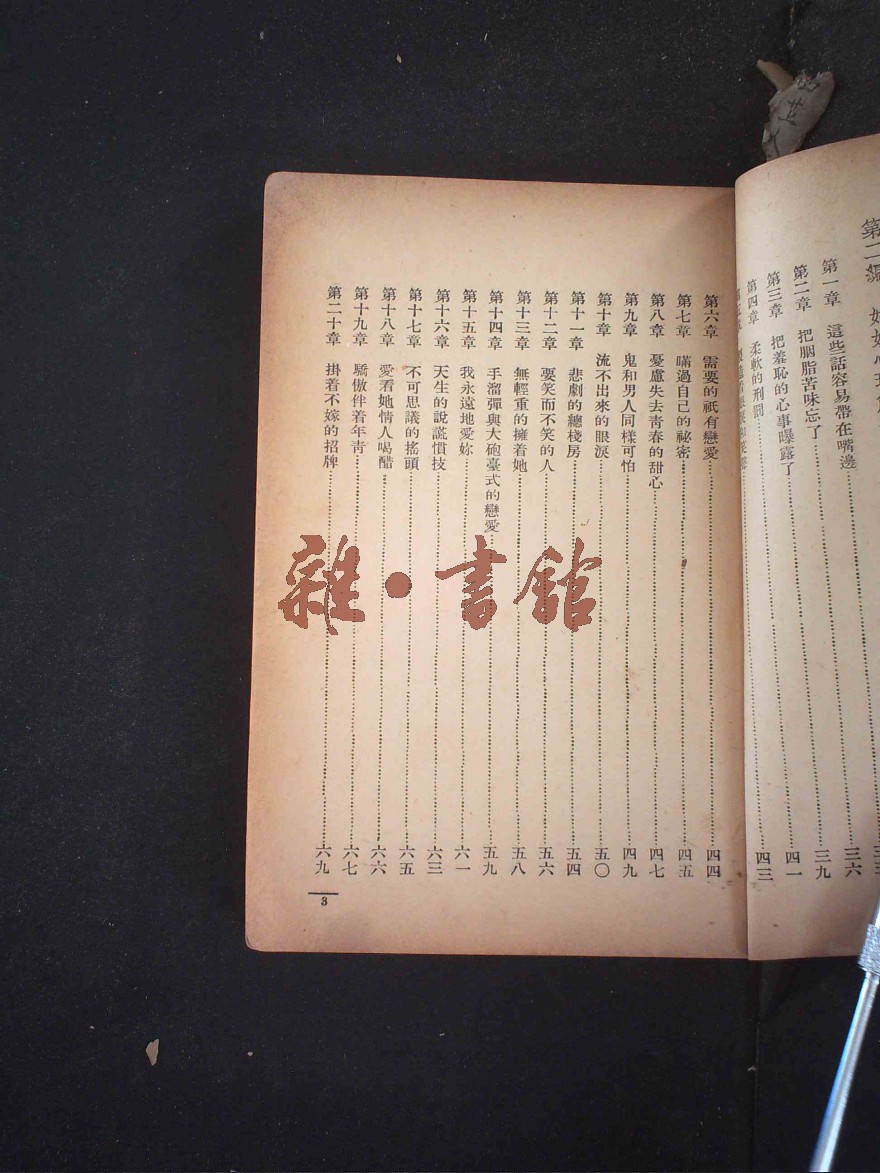 第二編
第一章 這些話容易帶在嘴邊 三六
第二章 把胭脂苦味忘了 三九
第三章 把羞恥的心事曝露了 四一
第四章 柔軟的刑罰 四三
第六章 需要的祇有戀愛 四四
第七章 瞞過自己的祕密 四五
第八章 憂慮失去靑春的甜心 四七
第九章 鬼和男人同樣可怕 四九
第十章 流不出來的眼淚 五〇
第十一章 悲劇的總棧房 五四
第十二章 要笑而不笑的人 五六
第十三章 無輕重的擁着她 五八
第十四章 手溜彈與大砲臺式的戀愛 五九
第十五章 我永遠地愛妳 六一
第十六章 天生的說謊慣技 六三
第十七章 不可思議的搖頭 六五
第十八章 愛看她情人喝醋 六六
第十九章 驕傲伴着年靑 六七
第二十章 掛着不嫁的招牌 六九
3
雜·書館